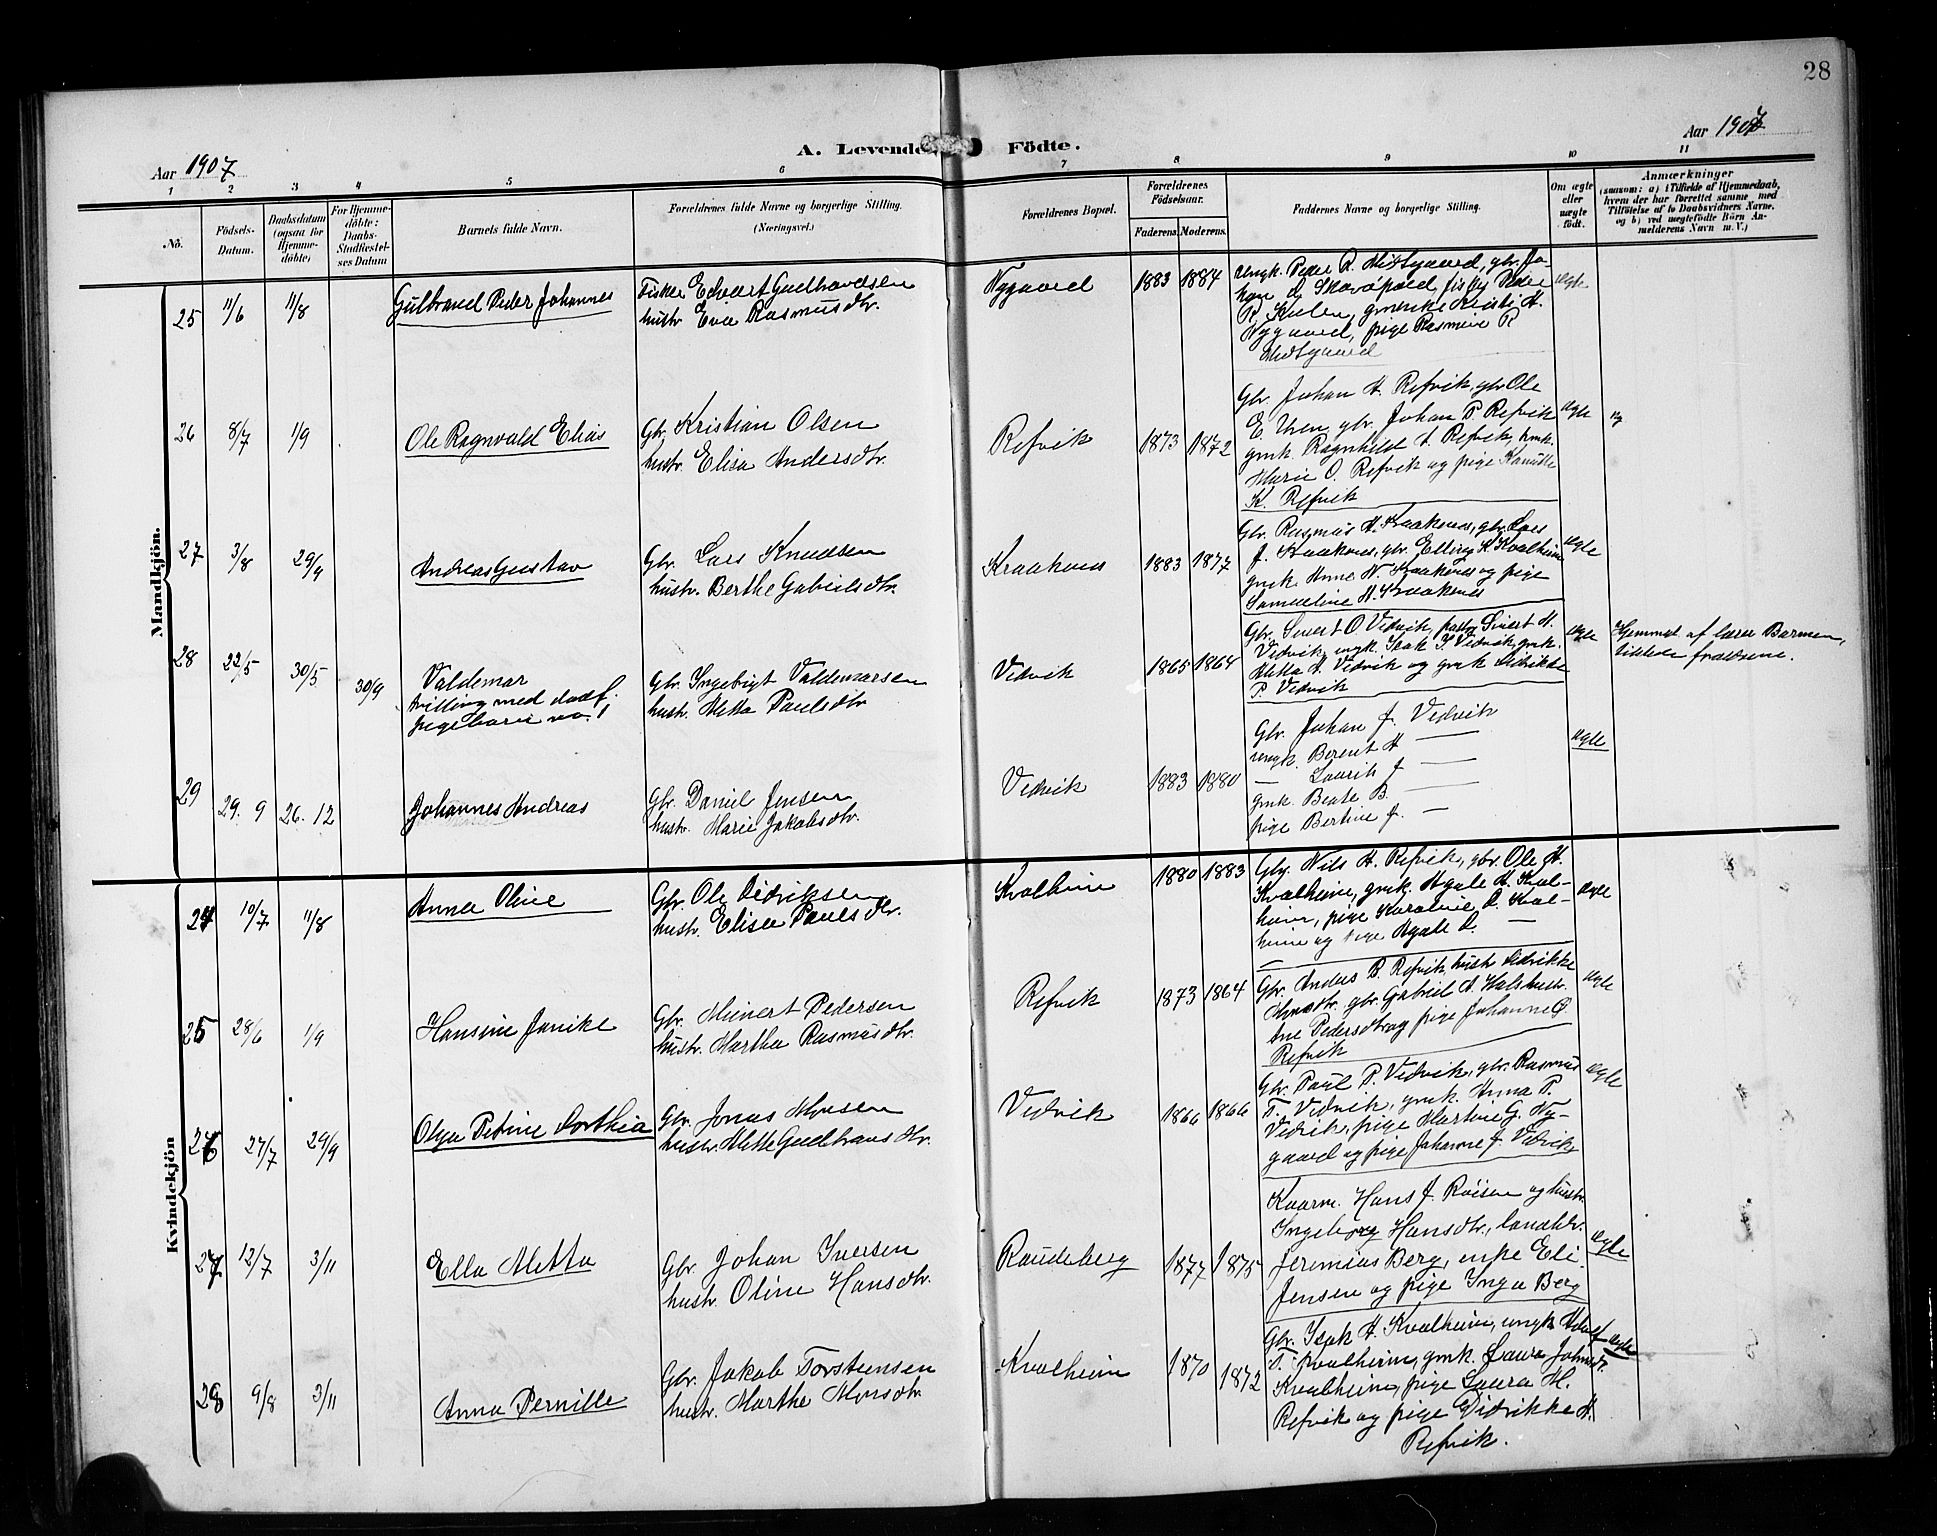 28
Aar 1907
A. Levende Födte.
Aar 1907
1 2 3 4 5 6 7 8 9 10 11
No.
Födsels-
Datum.
Daabsdatum
(ogsaa for
Hjemme-
döbte)
For Hjemme-
döbte:
Daabs-
Stadfæstel-
ses Datum
Barnets fulde Navn.
Forældrenes fulde Navne og borgerlige Stilling.
(Næringsvei.)
Forældrenes Bopæl.
Forældrenes
Födselsaar.
Faderens.
Moderens.
Faddernes Navne og borgerlige Stilling.
Om ægte
eller
uægte
födt.
Anmærkninger
(saasom: a) i Tilfælde af Hjemmedaab,
hvem der har forrettet samme med
Tilföielse af to Daabsvidners Navne,
og b) ved uægtefödte Börn An-
melderens Navn m. V.)
Mandkjön.
25 11/6 11/8 Gulbrand Peder Johannes
Fisker Edvart Gudbrandsen
hustr. Eva Rasmusdtr.
Nygaard 1883 1884
ungk. Peder R. Midtgaard, gbr. Jo-
han Skavøpold, Peder
R. Kulen, gmk. Kristi A.
Nygaard, pige Rasmine R
Midtgaard
ægte
26 8/7 1/9 Ole Ragnvald Elias
Gbr. Kristian Olsen
hustr. Elisa Andersdtr.
Refvik 1873 1872
Gbr. Johan A. Refvik, gbr. Ole
E. Uren, gbr. Johan P. Refvik
gmk. Ragnhild A. Refvik, gmk.
Marie O. Refvik og pige
K. Refvik
ægte
27 3/8 29/9 Andreas Gustav
Gbr. Lars Knudsen
hustr. Berthe Gabrielsdtr.
Kraakenes 1883 1877
Gbr. Rasmus A. Kraakenes, gbr. Lars
J. Kraakenes, gbr. Elling K. Kvalheim
gmk. Anne N. Kraakenes og pige
Samueline A. Kraakenes
ægte
28 22/5 30/5 30/9 Valdemar
tvilling med dødf.
pigebarn no. 1
Gbr. Ingebrigt Valdemarsen
hustr. Metta Paulsdtr
Vedvik 1865 1864
Gbr. Sivert O Vedvik, Sivert A.
Vedvik, ungk. Isak S. Vedvik, gmk.
Metta A. Vedvik og gmk Didrikke
P. Vedvik
ægte
Hjemmed. af lærer Barmen,
29 29. 9 26. 12 Johannes Andreas
Gbr. Daniel Jensen
hustr. Marie Jakobsdtr.
Vedvik 1883 1880
Gbr. Johan J. Vedvik
ungk. Berent A —
— Laurits J —
gmk. Beate B. —
pige Bertine J. —
ægte
Kvindekjön
24 10/7 11/8 Anna Oline
Gbr. Ole Didriksen
hustr. Elisa Paulsdtr.
Kvalheim 1880 1883
Gbr. Nils A. Refvik, gbr. Ole A.
Kvalheim, gmk. Agate A. Kval-
heim, pige Karoline D. Kval-
heim og pige Agate D. —
ægte
25 28/6 1/9 Hansine Janike
Gbr. Meinert Pedersen
hustr. Martha Rasmusdtr.
Refvik 1873 1864
Gbr. Anders B. Refvik, hustr Didrikke
Monsdtr. gbr. Gabriel A. Hals hustr.
Ane Pedersdtr og pige Johanne O.
Refvik
ægte
26 27/7 29/9 Olga Petrine Dorthea
Gbr. Jonas Monsen
hustr. Mette Gudbransdtr.
Vedvik 1866 1866
Gbr. Paul P. Vedvik, gbr. Rasmus
T. Vedvik, gmk. Anna P.
Vedvik, pige Martine G. Ny-
gaard og pige Johanne J. Vedvik
ægte
27 12/7 3/11 Ella Metta
Gbr. Johan Iversen
hustr. Oline Hansdtr.
Raudeberg 1877 1875
Kaarm. Hans J. Røisen og hustr.
Ingeborg Hansdtr., landh.
Jeremias Berg, enke Eli
Jensen og pige Inga Berg
ægte
28 9/8 3/11 Anna Pernille
Gbr. Jakob Torstensen
hustr. Marthe Monsdtr.
Kvalheim 1870 1872
Gbr. Isak A. Kvalheim, ungk. Adolf
T. Kvalheim, gmk. Laura Johansdtr.
Kvalheim, pige Laura M.
Refvik og pige Didrikke A.
Refvik.
ægte